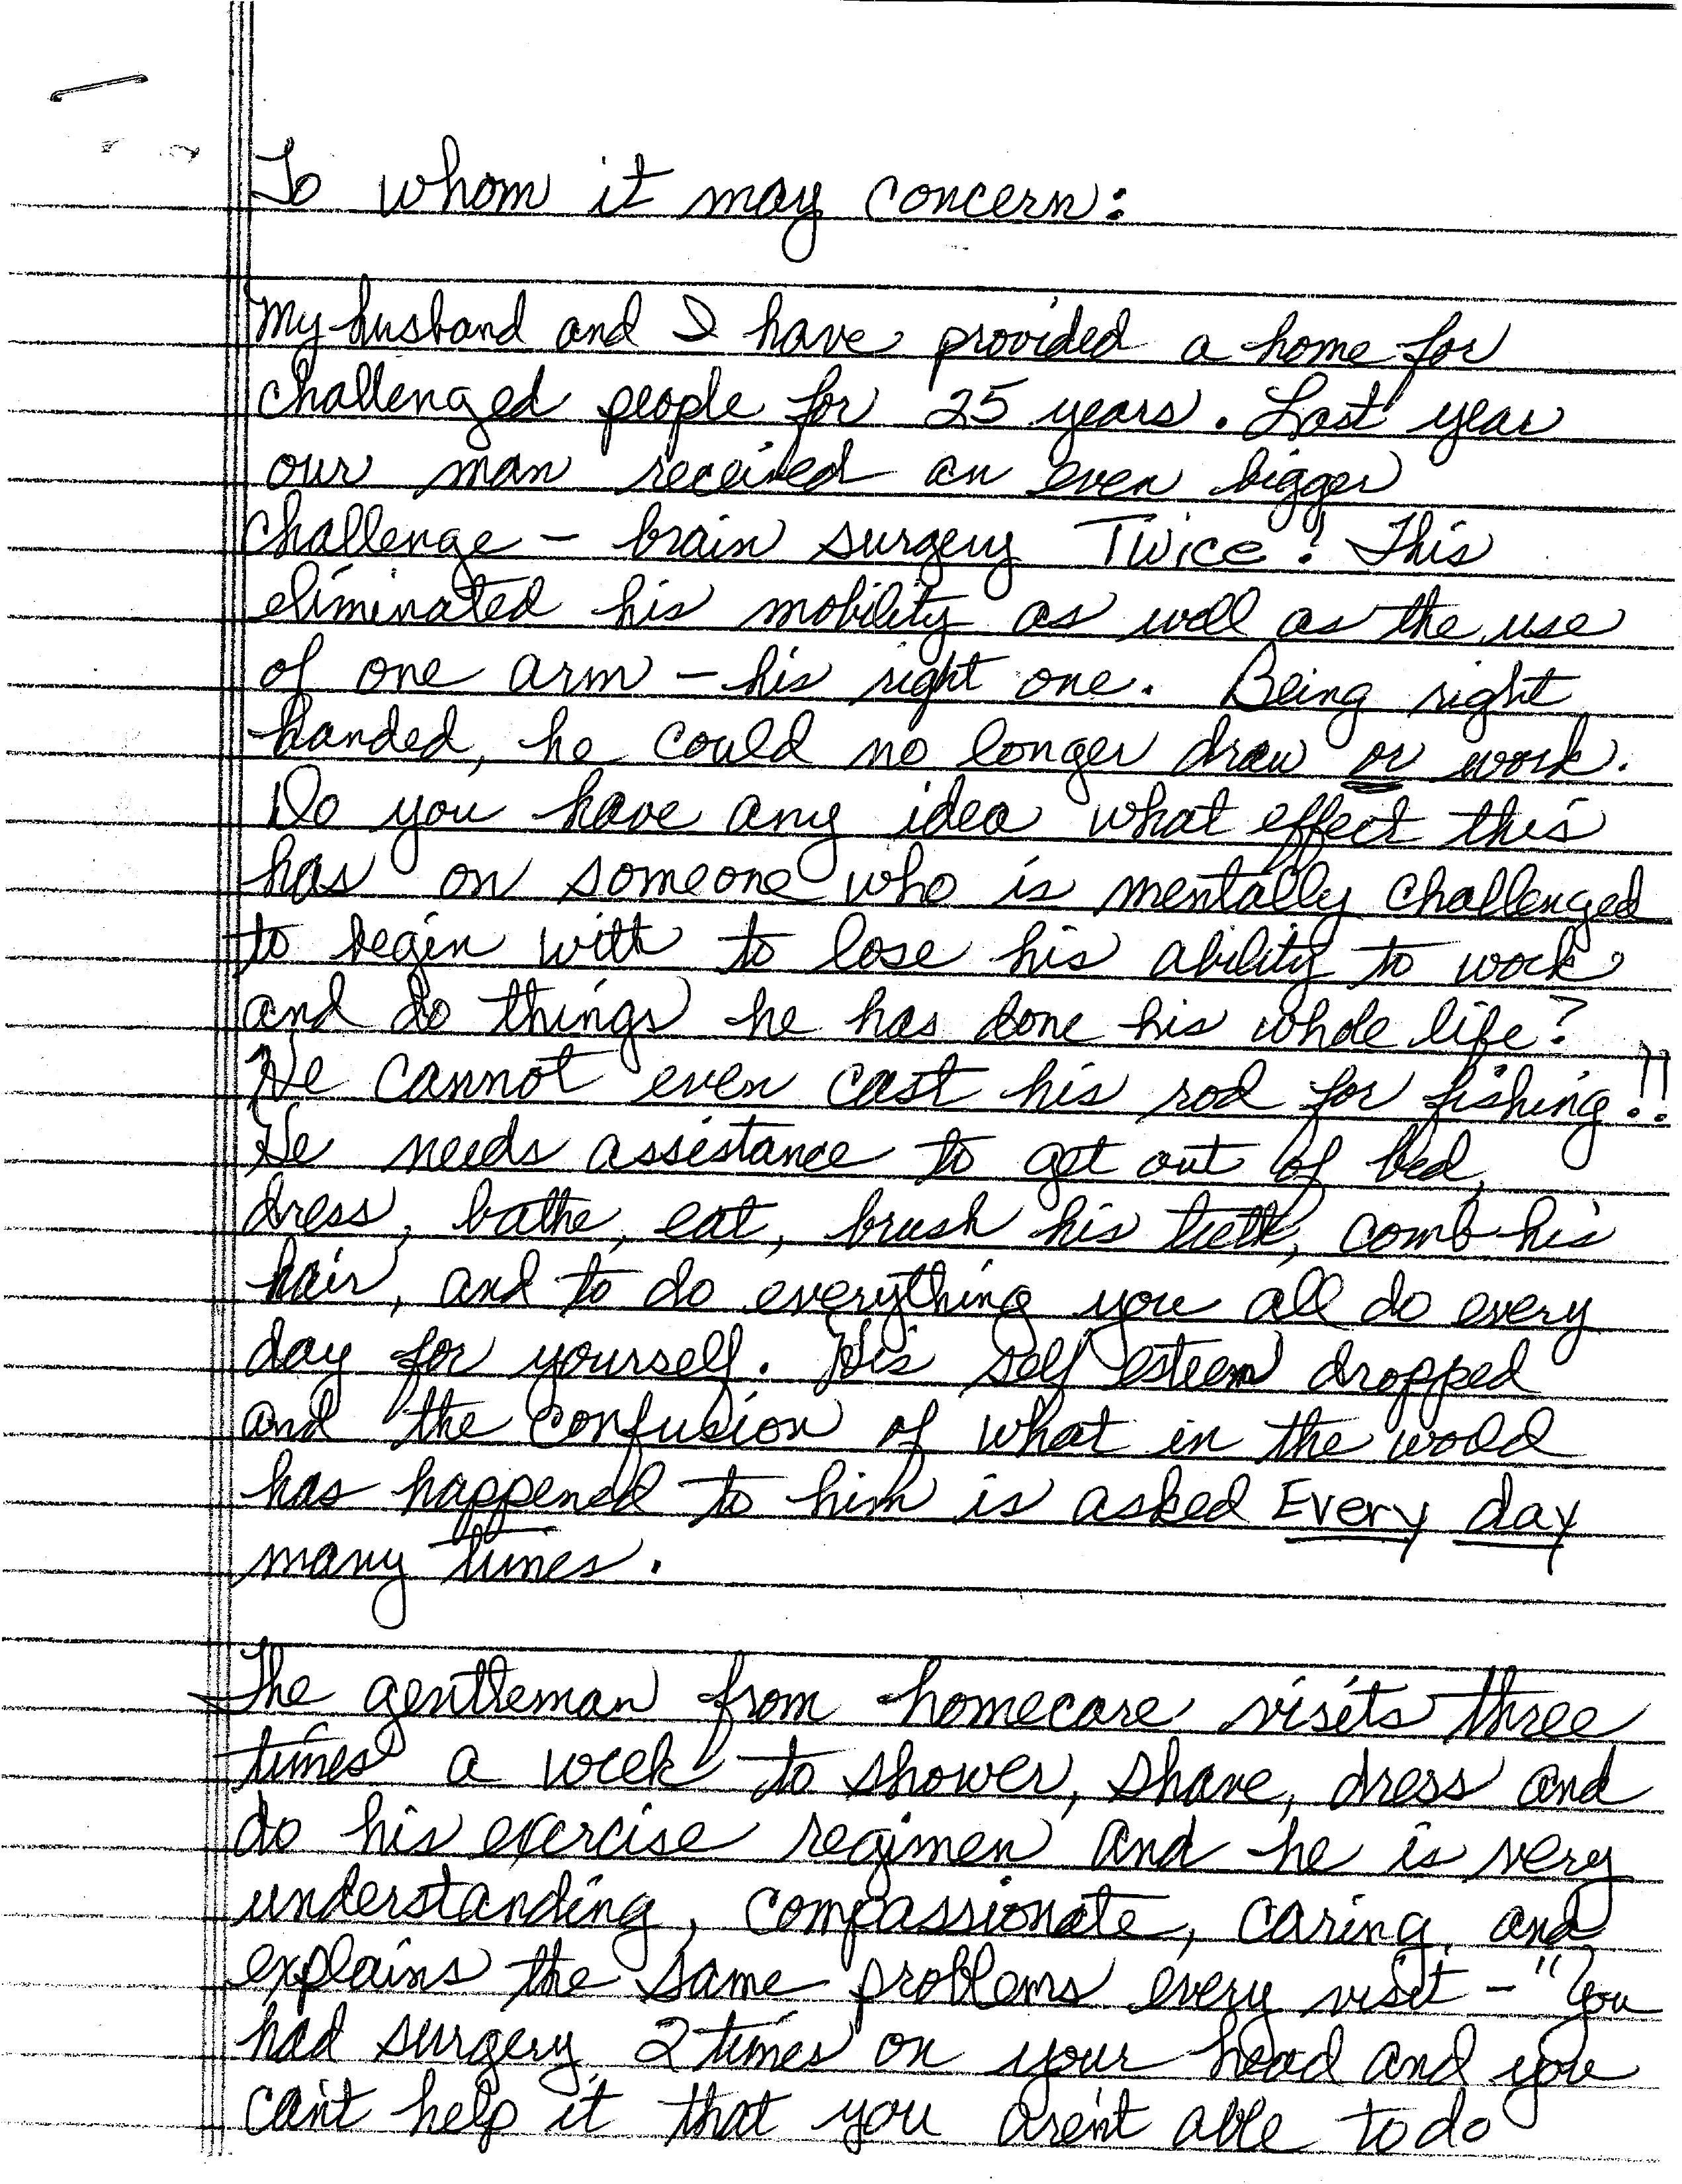 To whom it may concern:
My husband and I have provided a home for
challenged people for 25 years. Last year
our man received an even bigger
challenge - brain surgery Twice! This
eliminated his mobility as well as the use
of one arm - his right one. Being right
handed, he could no longer draw or work.
Do you have any idea what effect this
has on someone who is mentally challenged
to begin with to lose his ability to work
and do things he has done his whole life?
He cannot even cast his rod for fishing!!
He needs assistance to get out of bed,
dress, bathe, eat, brush his teeth, comb his
hair, and to do everything you all do every
day for yourself. His self esteem dropped
and the confusion of what in the world
has happened to him is asked Every day
many times.
The gentleman from homecare visits three
times a week to shower, shave, dress and
do his exercise regimen and he is very
understanding, compassionate, caring, and
explains the same problems every visit - "You
had surgery 2 times on your head and you
can't help it that you aren't able to do